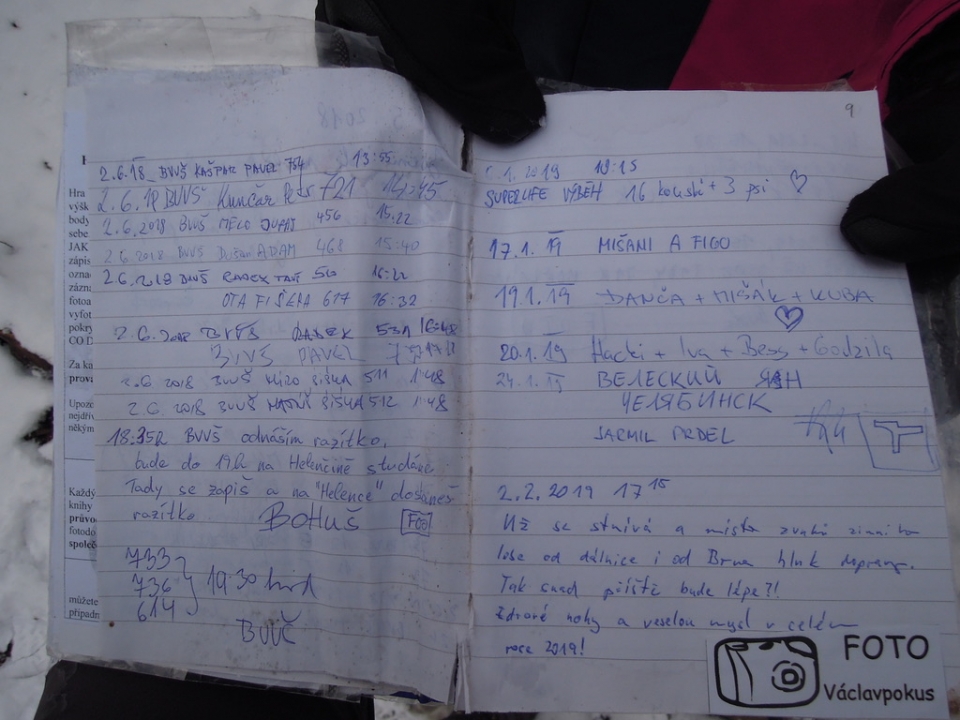 2.6.18 BVVŠ KAŠPAR PAVEL 754 13:55
2.6.18 BVVŠ Kunčar 721 14:45
2.6.2018 BVVŠ 456 15.22
2.6.2018 BVVŠ Dušan ADAM 468 15:40
2.6.2018 BVVŠ RADEK 56
OTA FIŠERA 617 16:32
2.6.2018 BVVŠ 531
BVVŠ PAVEL
2.6 2018 BVVŠ 511
2.6. 2018 BVVŠ 512
18.35h BVVŠ odnáším razítko,
bude do 19h na Helenčině studánce.
Tady se zapiš a na "Helence" dostaneš
razítko BOHUŠ
733
736 19:30 hod
614
BVVČ
Hra
výšk
body
sebe
JAK
zápis
ozna
zázna
fotoa
vyfot
pokry
CO D
Za ka
prova
Upozo
nejdří
někým
Každý
knihy
průvo
fotodo
společ
můžete
případn
9
1.2019 18:15
SUPERLIFE VÝBĚH 16 kousků + 3 psi
17.1.19 MIŠANI A FIGO
19.1.19 DANČA + MIŠÁK + KUBA
20.1.19 Hacki + Iva + Bess + Godzila
24.1.19 ВЕЛЕСКИЙ ЯН
ЧЕЛЯБИНСК
JARMIL PRDEL
2.2.2019 17 15
Už se stmívá a místo zvuků zimního
lesa od dálnice i od Brna hluk dopravy.
Tak snad příště bude lépe?!
Zdravé nohy a veselou mysl v celém
roce 2019!
FOTO
Václavpokus